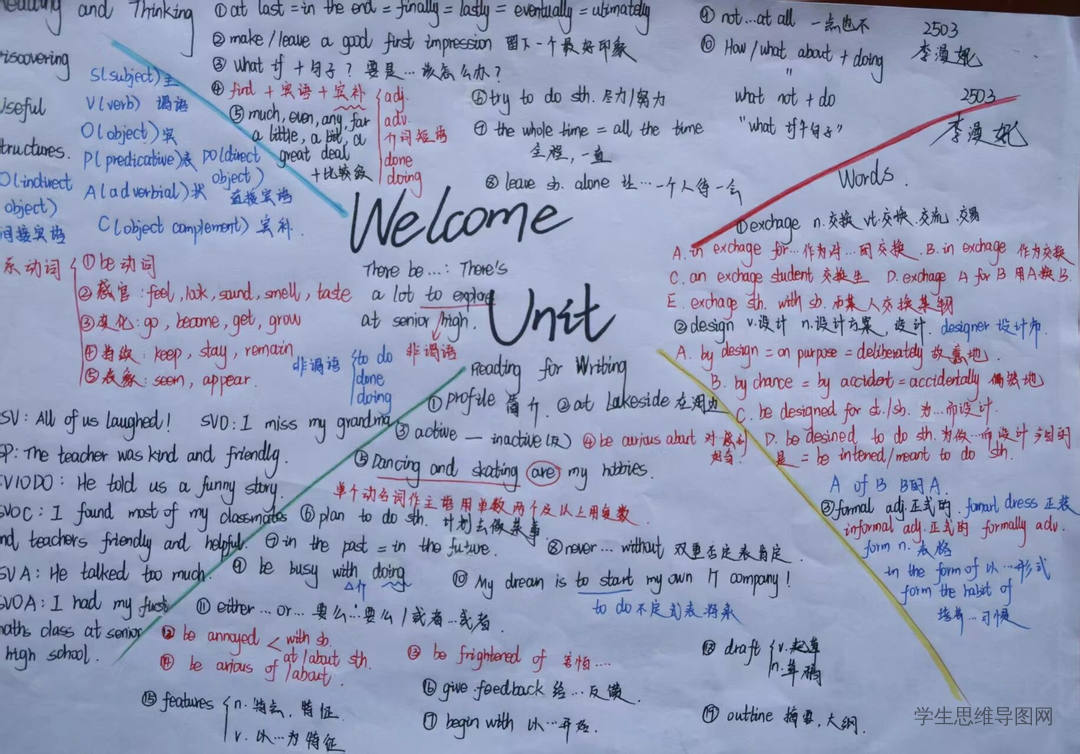 Reading and Thinking
Discovering
Useful
Structures.
S(subject)主
V(verb) 谓语
O(object)宾
P(predicative)表 DO(direct object) 直接宾语
O(indirect object) 间接宾语
A(adverbial)状
C(object complement)宾补.
①at last = in the end = finally = lastly = eventually = ultimately
②make/leave a good first impression 留下一个最好印象
③what if +句子? 要是…该怎么办?
④find + 宾语 + 宾补
adj.
adv.
介词短语
done
doing
⑤much, even, any, far
a little, a bit, a
great deal
+比较级
⑥try to do sth. 尽力/努力
⑦the whole time = all the time
全程,一直
⑧leave sb. alone 让…一个人待一会
⑨not…at all 一点也不
⑩How/what about + doing
"
what not + do
"what if+句子"
2503
李漫妮
2503
李漫妮
Welcome
Unit
There be…: There's
a lot to explore
at senior high.
非谓语
系动词
①be动词
②感官: feel, look, sound, smell, taste
③变化: go, become, get, grow
④持续: keep, stay, remain
⑤表象: seem, appear.
非谓语
to do
done
doing
SV: All of us laughed! SVO: I miss my grandma
SP: The teacher was kind and friendly.
SVIODO: He told us a funny story.
SVOC: I found most of my classmates
and teachers friendly and helpful.
SVA: He talked too much.
SVOA: I had my first
maths class at senior
high school.
Words.
①exchage n.交换 vt.交换.交流.交易
A. in exchage for… 作为对…的交换. B. in exchage 作为交换
C. an exchage student 交换生 D. exchage A for B 用A换B.
E. exchage sth. with sb. 与某人交换某物
②design v.设计 n.设计方案,设计. designer 设计师
A. by design = on purpose = deliberately 故意地.
B. by chance = by accident = accidentally 偶然地
C. be designed for st./sb. 为…而设计.
D. be desined to do sth. 为做…而设计 目的
是 = be intened/meant to do sth.
A of B B的A.
③formal adj.正式的. fomarl dress 正装
informal adj.正式的 formally adv.
form n. 表格
in the form of 以…形式
form the habit of
培养…习惯
Reading for Writing
①profile 简介. ②at lakeside 在湖边
③active — inactive(反) ④be curious about 对感到
好奇.
⑤Dancing and skating are my hobbies.
单个动名词作主语用单数 两个及以上用复数.
⑥plan to do sth. 计划去做某事
⑦in the past = in the future. ⑧never… without 双重否定表肯定.
⑨be busy with doing
△介
⑩My dream is to start my own IT company!
to do不定式表将来
⑪either…or… 要么…要么/或者…或者.
⑫be annoyed < with sb.
at/about sth.
⑬be frightened of 害怕….
⑭be curious of/about.
⑮features
n. 特点,特征.
v. 以…为特征
⑯give feedback 给…反馈.
⑰begin with 以…开始.
⑱draft
v.起草
n.草稿
⑲outline 摘要.大纲.
学生思维导图网